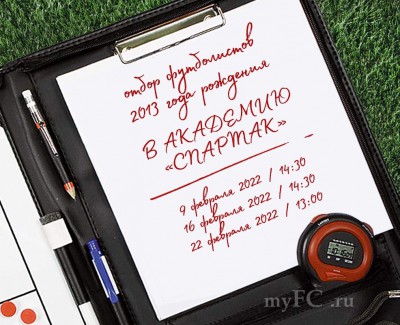 отбор футболистов
2013 года рождения
В АКАДЕМИЮ
«СПАРТАК»
9 февраля 2022 / 14:30
16 февраля 2022 / 14:30
22 февраля 2022 / 13:00
myFC.ru